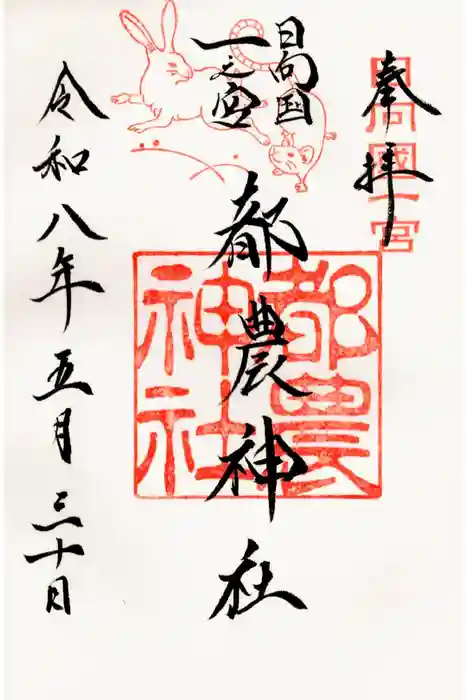 奉拝
日向國一宮
日向国
一之宮
都農神社
都農
神社
令和八年五月三十日